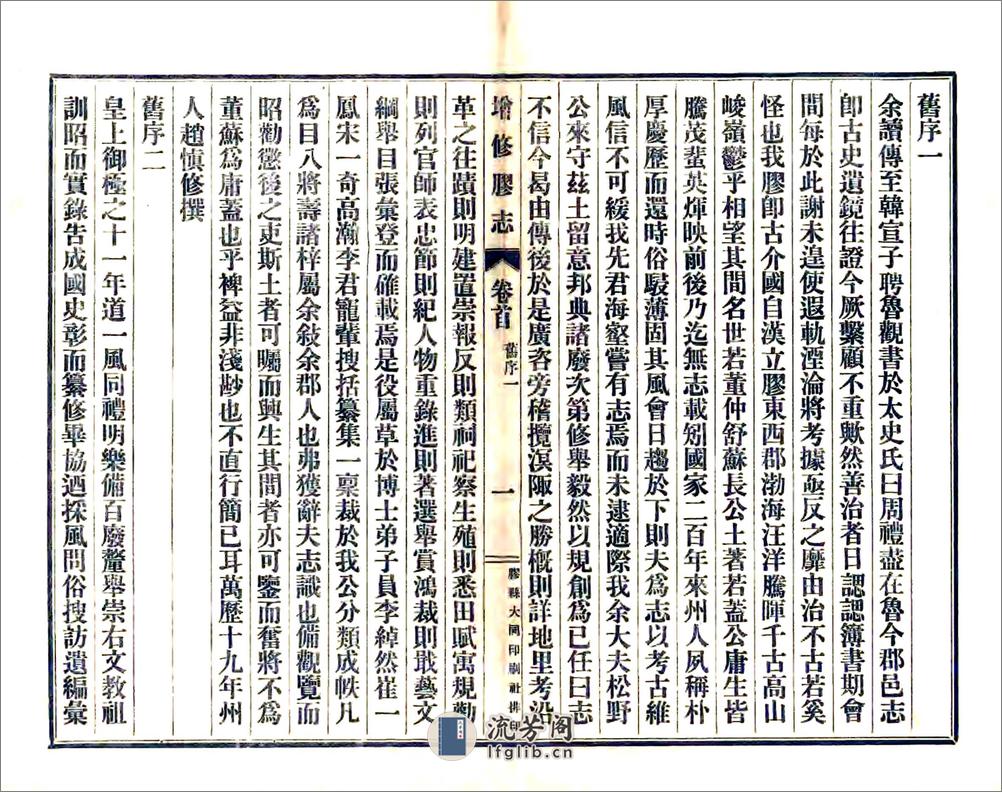 舊序一
余讀傳至韓宣子聘魯觀書於太史氏曰周禮盡在魯今郡邑志
卽古史遺鏡往證今厥繫顧不重歟然善治者日諰諰簿書期會
間每於此謝未遑使遐軌湮淪將考據亟反之靡由治不古若奚
怪也我膠卽古介國自漢立膠東西郡渤海汪洋騰暉千古高山
峻嶺鬱乎相望其間名世若董仲舒蘇長公土著若蓋公庸生皆
騰茂蜚英煇映前後乃迄無志載矧國家二百年來州人夙稱朴
厚慶歷而還時俗駸薄固其風會日趨於下則夫爲志以考古維
風信不可緩我先君海壑嘗有志焉而未逮適際我余大夫松野
公來守茲土留意邦典諸廢次第修舉毅然以規創爲已任曰志
不信今曷由傳後於是廣咨旁稽攬溟陬之勝槪則詳地里考沿
增修膠志
卷首
舊序一
一
膠縣大同印刷社排印
革之往蹟則明建置崇報反則類祠祀察生殖則悉田賦寓規勸
則列官師表忠節則紀人物重錄進則著選舉賞鴻裁則戢藝文
綱舉目張彙登而確載焉是役屬草於博士弟子員李綽然崔一
鳳宋一奇高瀚李君寵輩搜括纂集一稟裁於我公分類成帙凡
爲目八將壽諸梓屬余敍余郡人也弗獲辭夫志識也備觀覽而
昭勸懲後之吏斯土者可矚而興生其間者亦可鑒而奮將不爲
董蘇爲庸蓋也乎裨益非淺尠也不直行簡已耳萬歷十九年州
人趙愼修撰
舊序二
皇上御極之十一年道一風同禮明樂備百廢釐舉崇右文敎祖
訓昭而實錄告成國史彰而纂修畢協迺採風問俗搜訪遺編彙
流芳阁
lfglib.cn